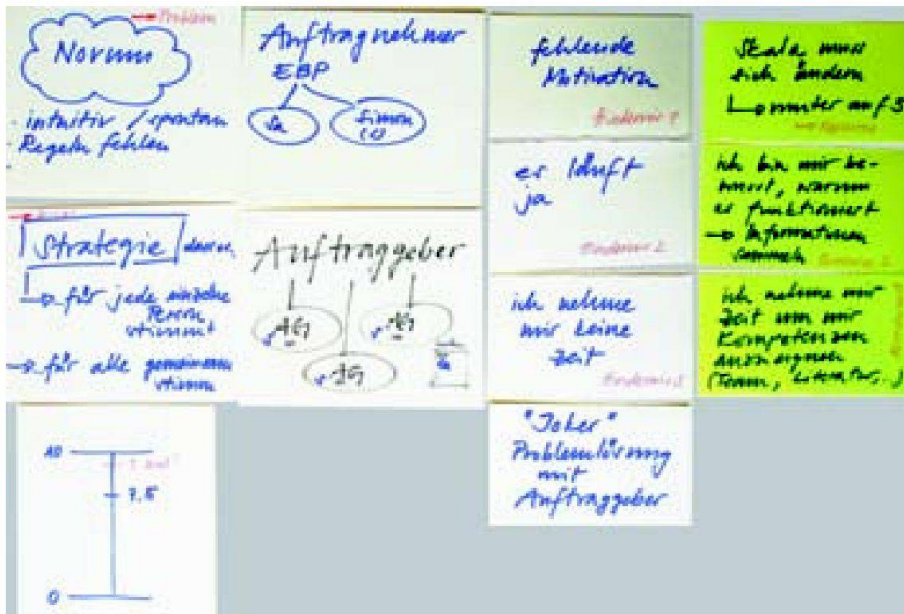 → Problem
Norum
- intuitiv / spontan
- Regeln fehlen
Strategie
→ für jede einzelne
Person
stimmt
→ für alle gemeinsam
stimm
10
7,5
0
Auftragnehmer
EBP
Simon
Auftraggeber
AG
AG
AG
fehlende
Motivation
Hindernis 1
er läuft
ja
Hindernis 2
ich nehme
mir keine
Zeit
Hindernis 3
"Joker"
Problemlösung
mit
Auftraggeber
Skala muss
sich ändern
auf 5
ich bin mir be-
wusst, warum
er funktioniert
→ Informationen
sammeln
ich nehme mir
Zeit um mir
Kompetenzen
anzueignen
(Team, Literatur, ..)